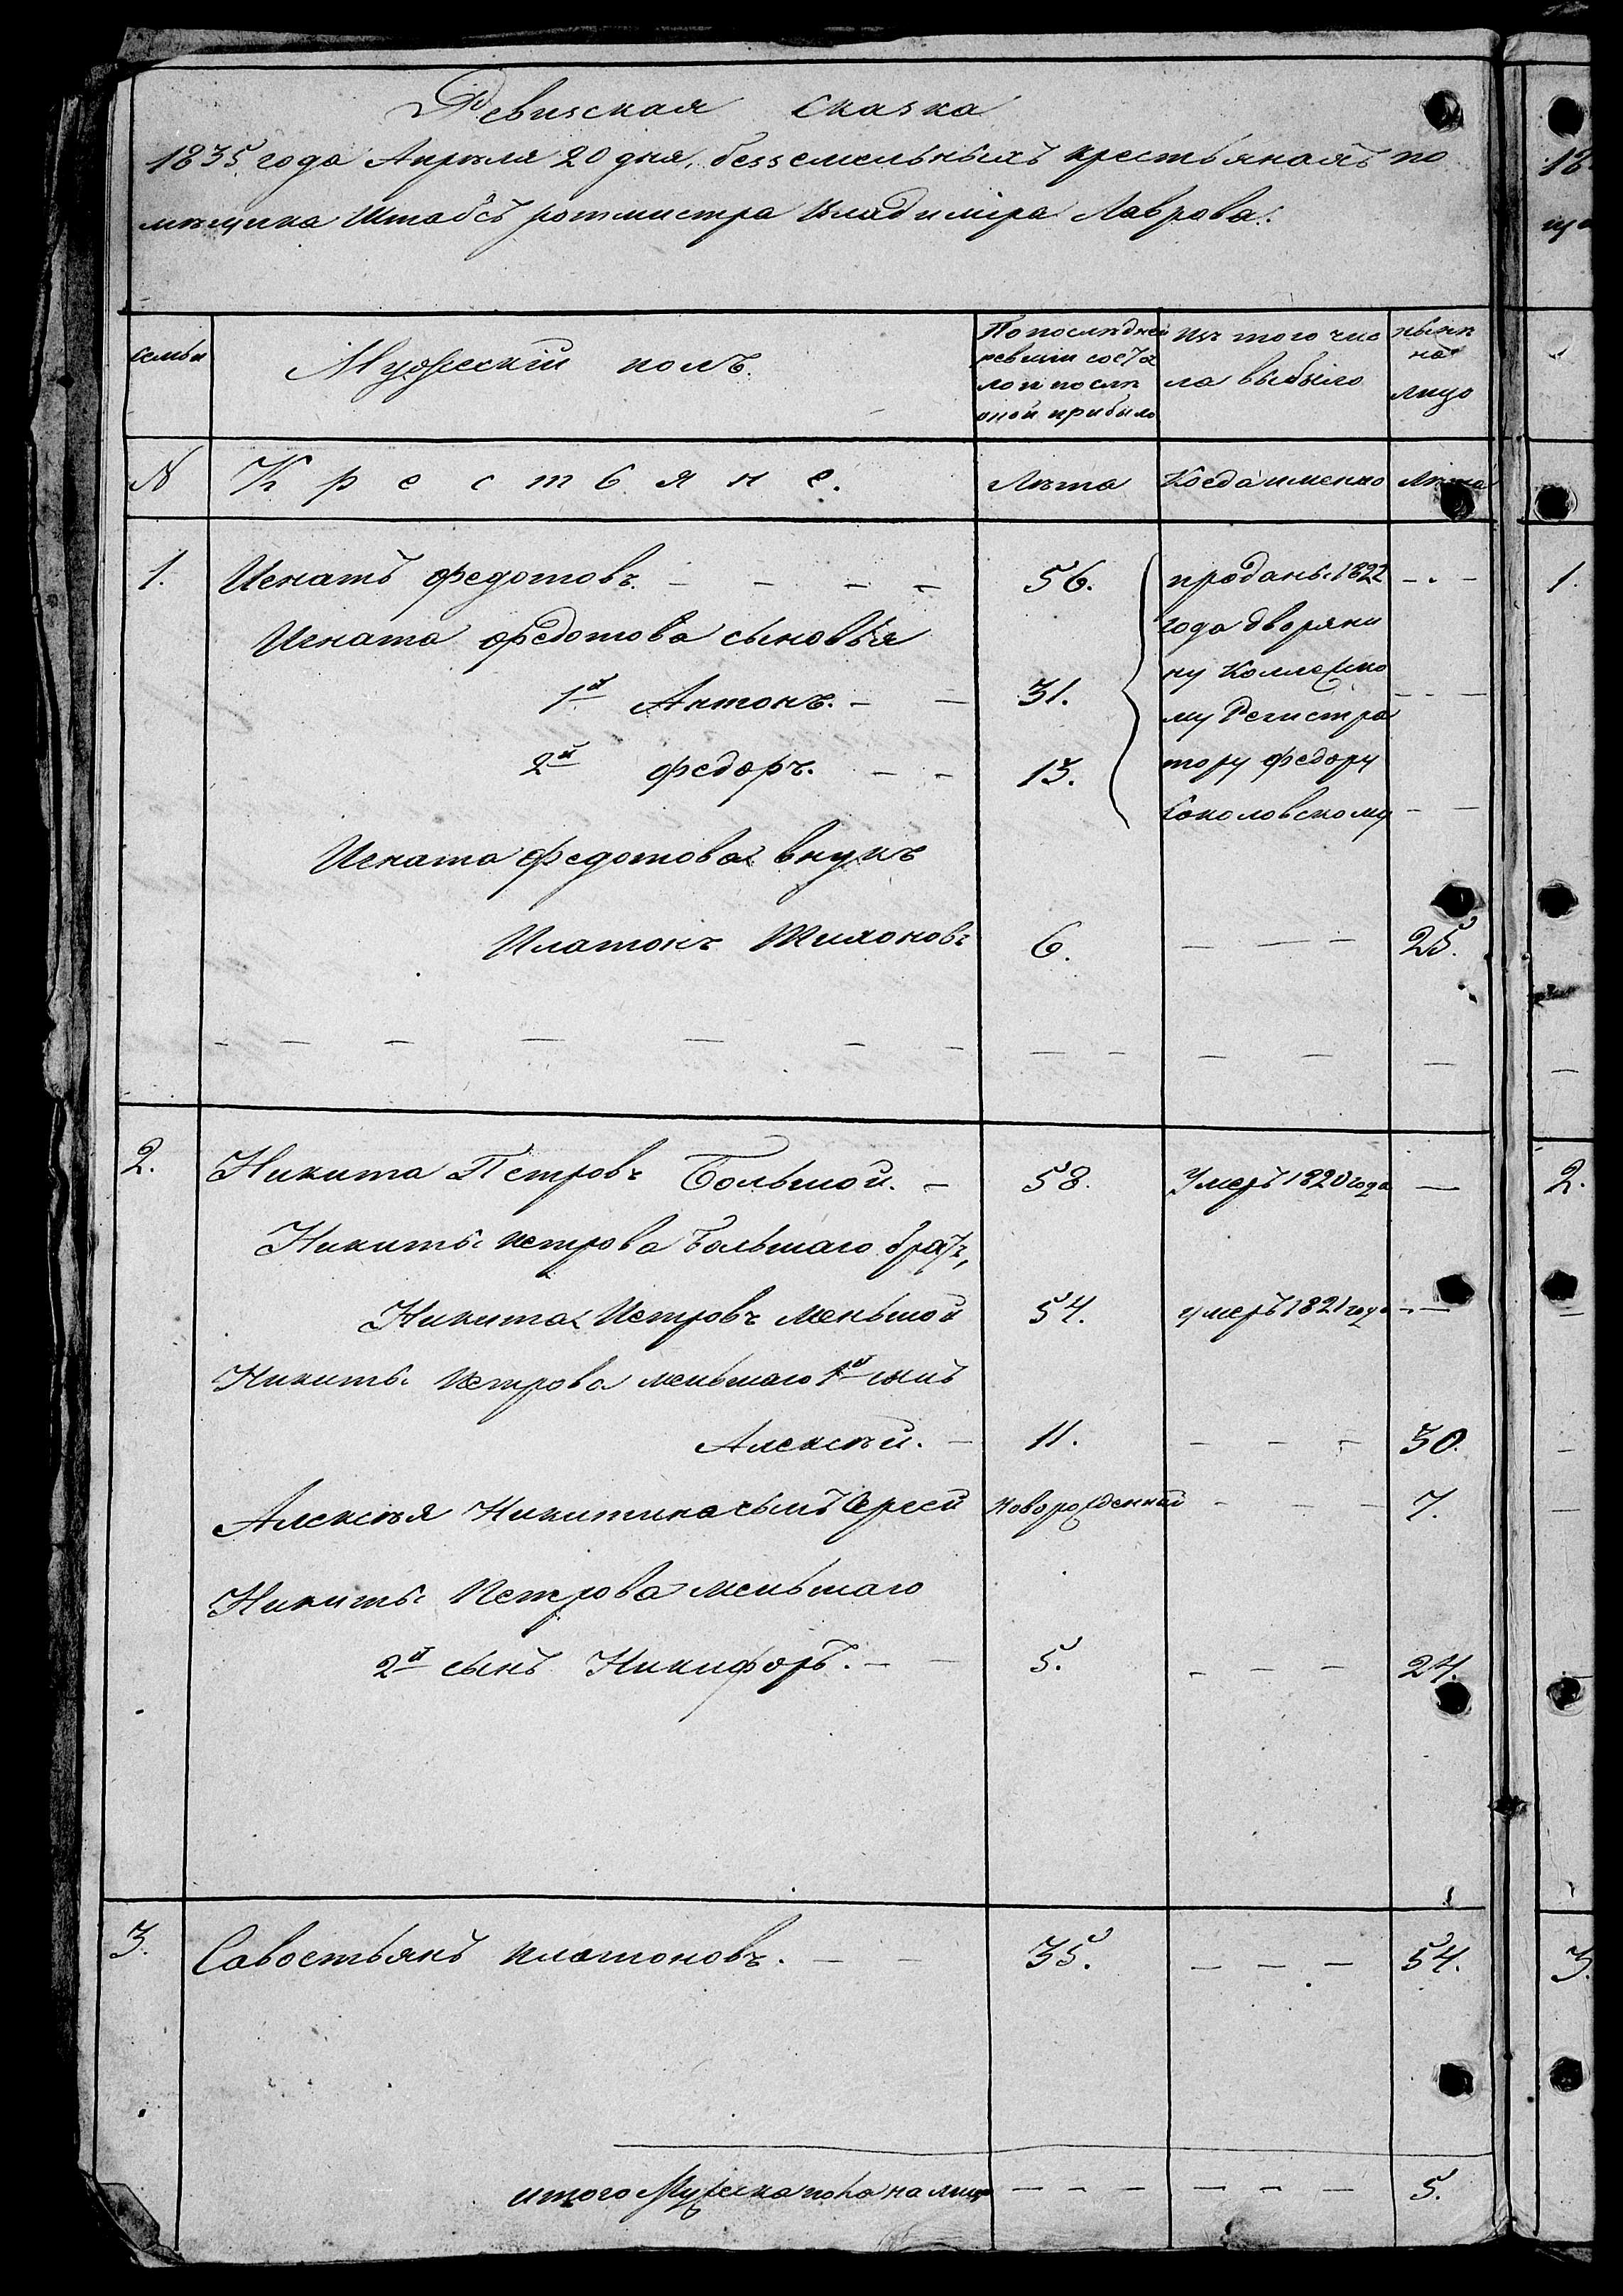 Ревиская сказка
1835 года Апреля 20 дня, безземельныхъ крестьянахъ по
мѣщика Штабсъ ротмистра Владиміра Лаврова.
семьи
Мужескій полъ
По последней
ревизіи состо
ло и после
оной прибыло
Изъ того чис
ла выбыло
нынѣ
на
лицо
N
Крестьяне.
Лѣта
Когда именно
Лѣта
1.
Игнатъ Федотовъ. — — — —
56.
проданы 1822
— . —
Игната Федотова сыновья
года дворяни
1й Антонъ. — —
31.
ну Коллежско
— — —
му Регистра
2й Федоръ. — —
13.
тору Федору
Соколовскому
— —
Игната Федотова внукъ
Платонъ Тихоновъ
6.
— — —
25.
— — — — — — —
— —
— —
—
2.
Никита Петровъ Большой. —
58.
Умеръ 1820 года
—
Никиты Петрова Большаго братъ,
Никита Петровъ Меньшой
54.
умеръ 1821 года
— —
Никиты Петрова меньшаго 1й сынъ
Алексѣй. —
11.
— — —
30.
Алексѣя Никитина сынъ Сергей
Новорожденный
— — —
7.
Никиты Петрова меньшаго
2й сынъ Никифоръ. — —
5.
— — —
24.
3.
Савостьянъ Платоновъ. — —
35.
— — —
54.
итого Мужеска пола на лицо
— — —
— — —
5.
18
ще
1.
2.
3.